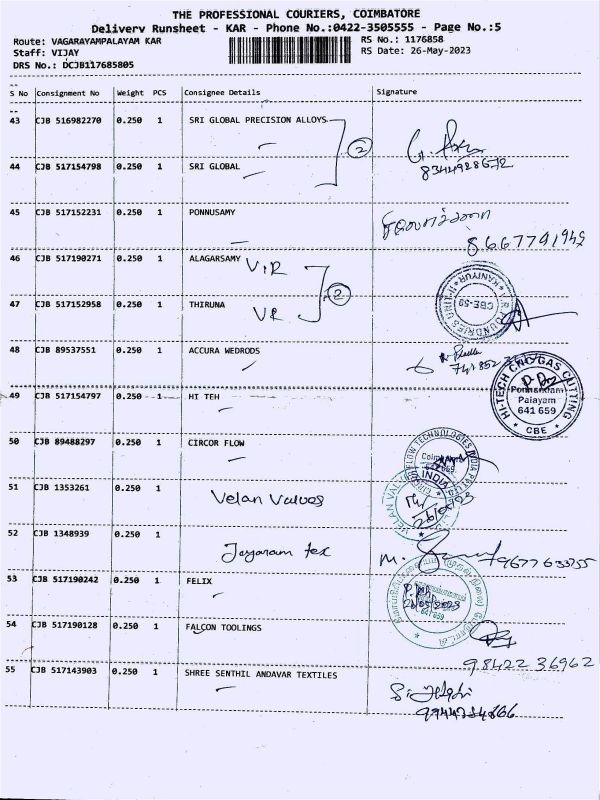 THE PROFESSIONAL COURIERS, COIMBATORE
Delivery Runsheet - KAR - Phone No.:0422-3505555 - Page No.:5
Route: VAGARAYAMPALAYAM KAR
RS No.: 1176858
Staff: VIJAY
RS Date: 26-May-2023
DRS No.: DCJB117685805
S No Consignment No Weight PCS Consignee Details Signature
43 CJB 516982270 0.250 1 SRI GLOBAL PRECISION ALLOYS
2
8344928672
44 CJB 517154798 0.250 1 SRI GLOBAL
45 CJB 517152231 0.250 1 PONNUSAMY
8667791945
46 CJB 517190271 0.250 1 ALAGARSAMY VIR
2
CBE-59
47 CJB 517152958 0.250 1 THIRUNA VR
48 CJB 89537551 0.250 1 ACCURA WEDRODS
49 CJB 517154797 0.250 1 HI TEH
HI-TECH CNC GAS CUTTING
Ponnandam
Palayam
641 659
* CBE *
50 CJB 89488297 0.250 1 CIRCOR FLOW
FLOW TECHNOLOGIES INDIA PVT
Coimbatore
51 CJB 1353261 0.250 1 Velan Valves
VELAN VALVES INDIA
52 CJB 1348939 0.250 1 Jayaram tex
M.
53 CJB 517190242 0.250 1 FELIX
26/05/2023
641 659
54 CJB 517190128 0.250 1 FALCON TOOLINGS
98422 36962
55 CJB 517143903 0.250 1 SHREE SENTHIL ANDAVAR TEXTILES